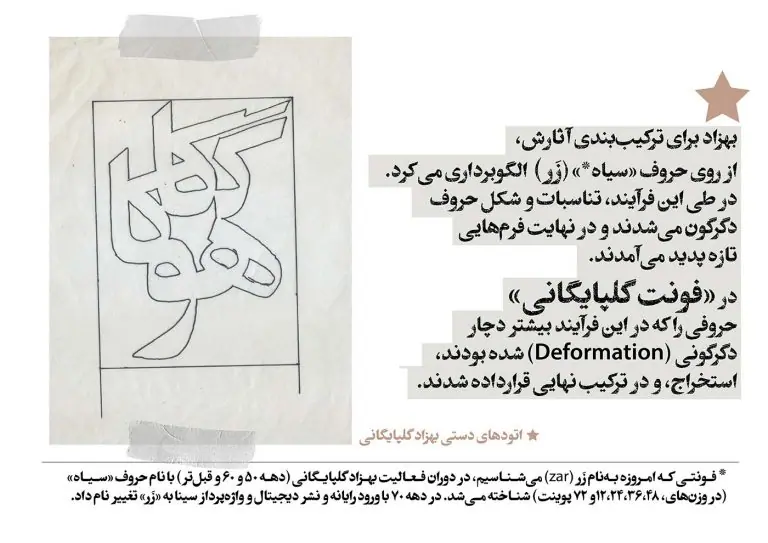 بهزاد برای ترکیب‌بندی آثارش،
از روی حروف «سیاه*» (زَر) الگوبرداری می‌کرد.
در طی این فرآیند، تناسبات و شکل حروف
دگرگون می‌شدند و در نهایت فرم‌هایی
تازه پدید می‌آمدند.
در «فونت گلپایگانی»
حروفی را که در این فرآیند بیشتر دچار
دگرگونی (Deformation) شده بودند،
استخراج، و در ترکیب نهایی قرارداده شدند.
اتودهای دستی بهزاد گلپایگانی
* فونتی که امروزه به‌نام زَر (zar) می‌شناسیم، در دوران فعالیت بهزاد گلپایگانی (دهه ۵۰ و ۶۰ و قبل‌تر) با نام حروف «سیاه»
(در وزن‌های، ۱۲،۲۴،۳۶،۴۸ و ۷۲ پوینت) شناخته می‌شد. در دهه ۷۰ با ورود رایانه و نشر دیجیتال و واژه‌پرداز سینا به «زَر» تغییر نام داد.